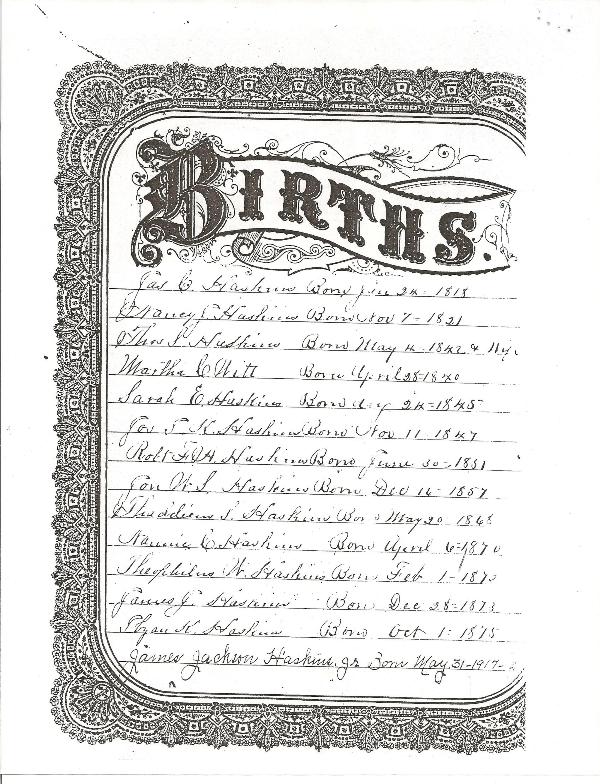 BIRTHS.
Jas C Haskins Born Jan 24 - 1818
Nancy J. Haskins Born Nov 7 - 1821
Thos S. Haskins Born May 4 - 1842 &
Martha C Witt Born April 28 - 1840
Sarah E. Haskins Born 24 - 1845
Jos T. K. Haskins Born Nov 11 1847
Robt F. H. Haskins Born June 30 - 1851
W. S. Haskins Born Dec 14 - 1857
S. Haskins Born May 20 1868
Nannie C. Haskins Born April 6 - 1870
Theophilus W. Haskins Born Feb 1 - 1872
James J. Haskins Born Dec 28 - 1873
K Haskins Born Oct 1 - 1875
James Jackson Haskins, Jr Born May 31 - 1917 -